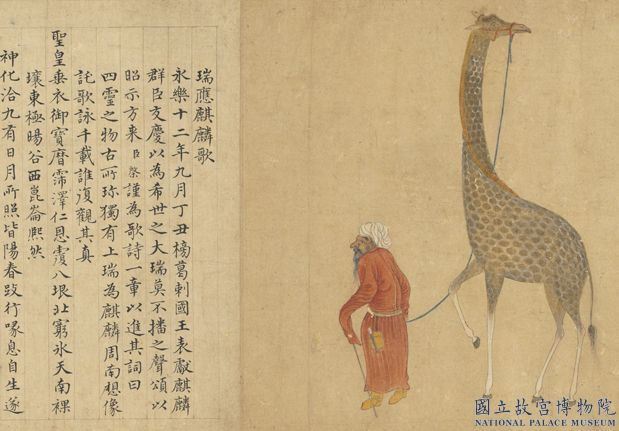 瑞應麒麟歌
永樂十二年九月丁丑榜葛剌國王表獻麒麟
群臣交慶以為希世之大瑞莫不播之聲頌以
昭示方来臣棨謹為歌詩一章以進其詞曰
四靈之物古所珍獨有上瑞為麒麟周南想像
託歌詠千載誰復觀其真
聖皇垂衣御寶曆霈澤仁恩覆八垠北窮氷天南裸
壤東極暘谷西崑崙熙然
神化洽九有日月所照皆陽春跂行喙息自生遂
國立故宮博物院
NATIONAL PALACE MUSEUM